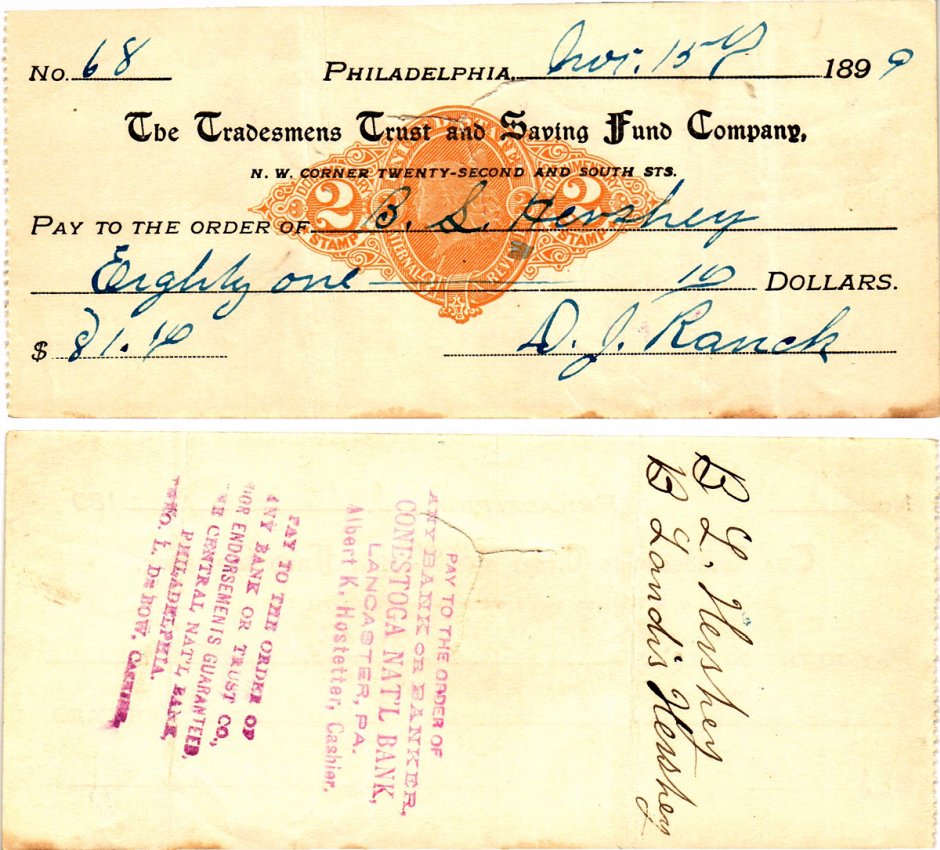 No. 68 PHILADELPHIA, Nov. 15 1899
The Tradesmens Trust and Saving Fund Company,
N. W. CORNER TWENTY-SECOND AND SOUTH STS.
DOCUMENTARY
2 2
STAMP STAMP
PAY TO THE ORDER OF B. L. Hershey
Eighty one 40 DOLLARS.
$ 81.40 D. J. Ranck
B L. Hershey
B Landis Hershey
PAY TO THE ORDER OF
ANY BANK OR BANKER,
CONESTOGA NAT'L BANK,
LANCASTER, PA.
Albert K. Hostetter, Cashier.
PAY TO THE ORDER OF
ANY BANK OR TRUST CO.,
FOR ENDORSEMENTS GUARANTEED,
THE CENTRAL NAT'L BANK,
PHILADELPHIA.
THEO. L. DE BOW, CASHIER.